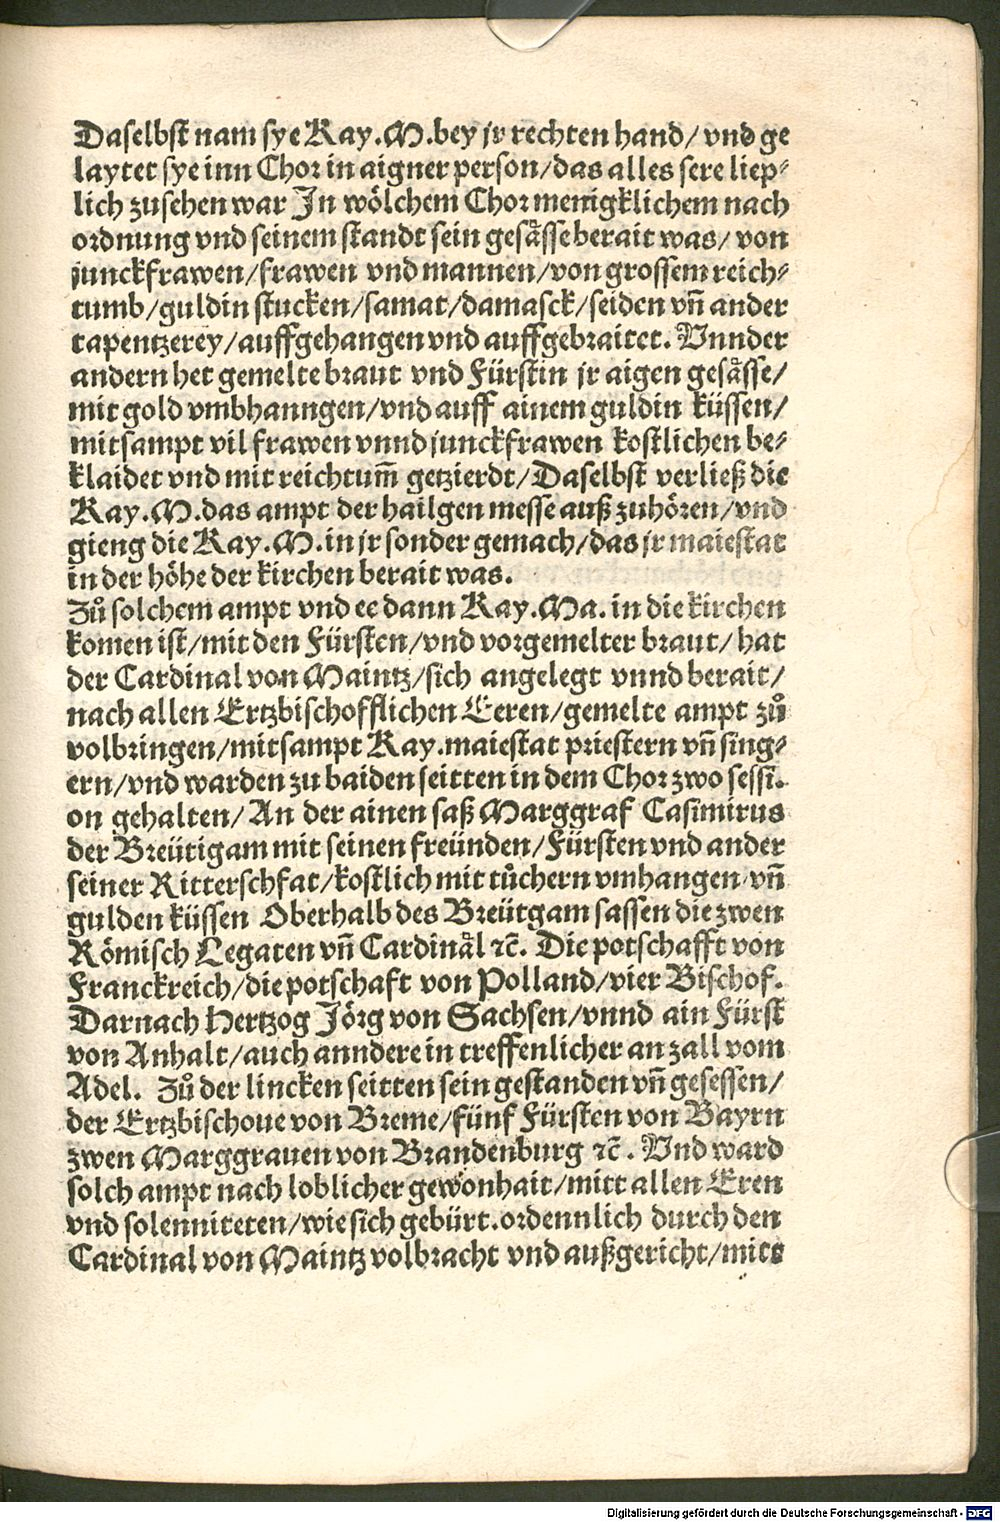 Daselbst nam sye Kay.M.bey jr rechten hand/ vnd ge
laytet sye inn Chor in aigner person/das alles sere liep⸗
lich zusehen war In wölchem Chor menigklichem nach
ordnung vnd seinem standt sein gesaͤsse berait was/ von
junckfrawen/frawen vnd mannen/von grossem reich⸗
tumb/guldin stucken/samat/damasck/seiden vñ ander
tapentzerey/auffgehangen vnd auffgebraitet. Vnnder
andern het gemelte braut vnd Fürstin jr aigen gesaͤsse/
mit gold vmbhanngen/vnd auff ainem guldin küssen/
mitsampt vil frawen vnnd junckfrawen kostlichen be⸗
klaidet vnd mit reichtum̃ getzierdt/Daselbst verließ die
Kay.M.das ampt der hailgen messe auß zuhören/vnd
gieng die Kay.M.in jr sonder gemach/das jr maiestat
in der höhe der kirchen berait was.
Zuͦ solchem ampt vnd ee dann Kay.Ma. in die kirchen
komen ist/mit den Fürsten/vnd vorgemelter braut/ hat
der Cardinal von Maintz/sich angelegt vnnd berait/
nach allen Ertzbischofflichen Eeren/gemelte ampt zuͦ
volbringen/mitsampt Kay.maiestat priestern vñ sing⸗
ern/vnd warden zu baiden seitten in dem Chor zwo sessi⸗
on gehalten/ An der ainen saß Marggraf Casimirus
der Breütigam mit seinen freünden/Fürsten vnd ander
seiner Ritterschfat/kostlich mit tuͦchern vmhangen vñ
gulden küssen Oberhalb des Breütgam sassen die zwen
Römisch Legaten vñ Cardinaͤl ꝛc̃. Die potschafft von
Franckreich/die potschaft von Polland/vier Bischof.
Darnach Hertzog Jörg von Sachsen/vnnd ain Fürst
von Anhalt/auch anndere in treffenlicher an zall vom
Adel. Zuͦ der lincken seitten sein gestanden vñ gesessen/
der Ertzbischoue von Breme/fünf Fürsten von Bayrn
zwen Marggrauen von Brandenburg ꝛc̃. Vnd ward
solch ampt nach loblicher gewonhait/mitt allen Eren
vnd solenniteten/wie sich gebürt.ordennlich durch den
Cardinal von Maintz volbracht vnd außgericht/mitt
Digitalisierung gefördert durch die Deutsche Forschungsgemeinschaft - DFG